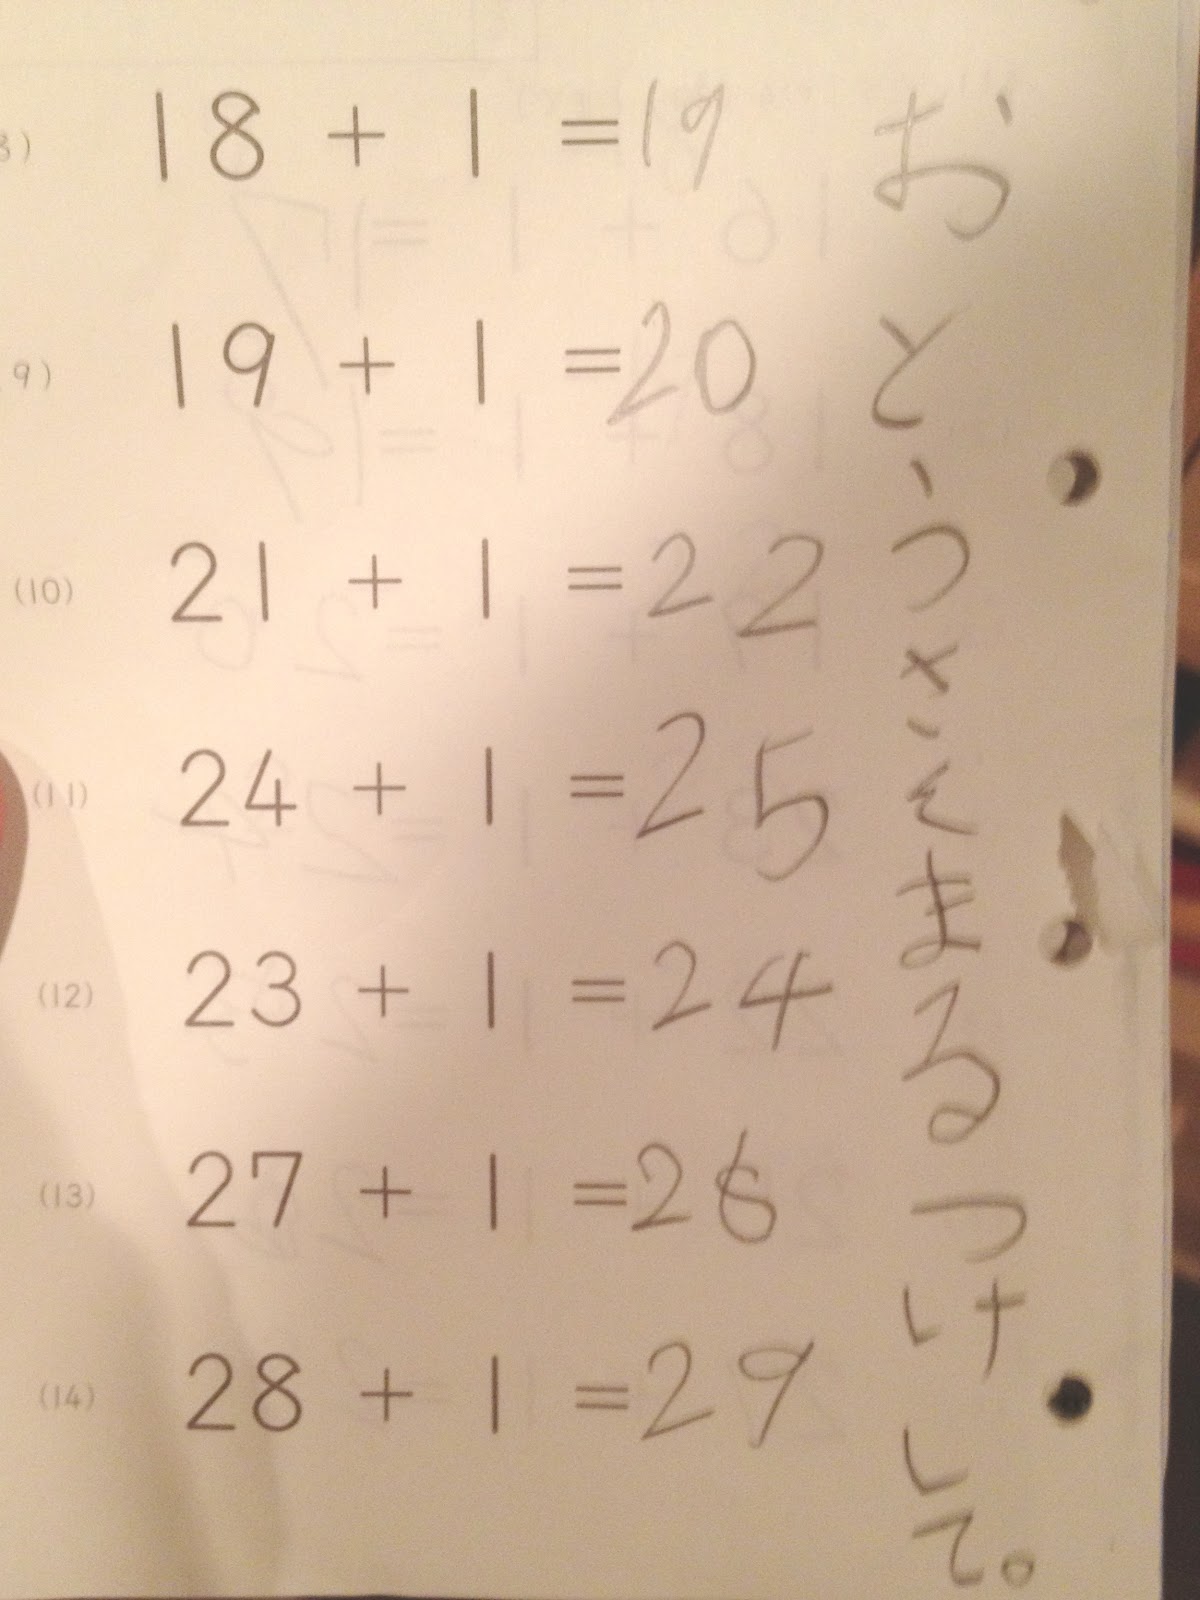 8) 18 + 1 = 19
9) 19 + 1 = 20
(10) 21 + 1 = 22
(11) 24 + 1 = 25
(12) 23 + 1 = 24
(13) 27 + 1 = 28
(14) 28 + 1 = 29
おとうさんまるつけして。